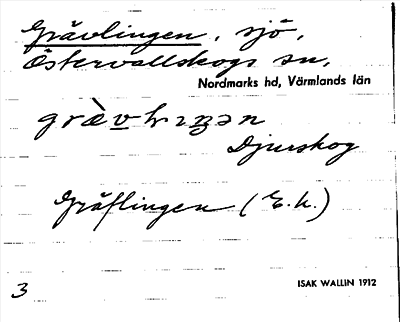 Grävlingen, sjö,
Östervallskogs sn,
Nordmarks hd, Värmlands län
Djurskog
Gräflingen (E.k.)
3
ISAK WALLIN 1912